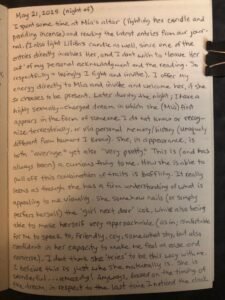 May 21, 2024 (night of)
I spent some time at Mia's altar (lighting her candle and
and reading the latest entries from our jour-
nal. (I also light candle as well, since one of the
entries directly involves her, and I don't wish to "leave her
out" of my personal acknowledgment and the reading. So
respectfully + lovingly I light and invite). I offer my
energy directly to Mia and invite and welcome her, if she
so chooses to be present. Later during the night, I have a
light sexually-charged dream in which she (Mia) first
appears in the form of someone I do not know or recog-
nize terrestrially, or via personal memory/history (uniquely
different from humans I know). She, in appearance, is
both "average" yet also "very pretty". This is (and has
always been) a curious truth to me. How she is able to
pull off this combination of traits is baffling. It really
seems as though she has a firm understanding of what is
appealing to me visually. She somehow nails (or simply
perfects herself) the "girl next door" look, while also being
able to make herself very approachable (as in, inviteable
for me to speak to, friendly, coy, somewhat shy, but also
confident in her capacity to make me feel at ease and
reverse). I don't think she "tries" to be this way with me.
I believe this is just who she naturally is. She is
wonderful + amazing! Anyways, based on the timing of
the dream, in respect to the last time I noticed the clock